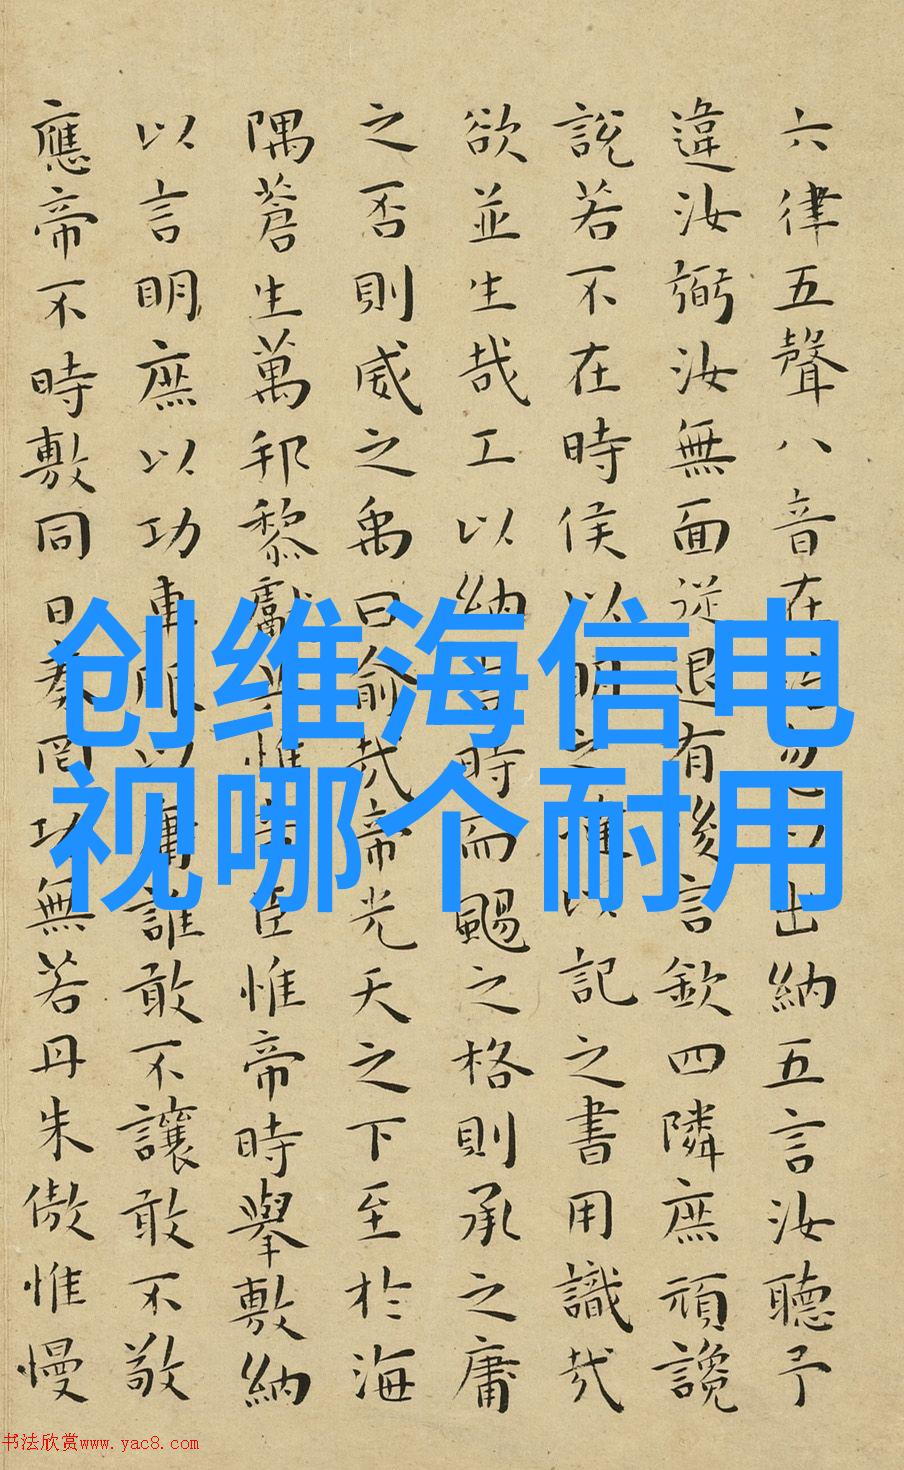 六律五聲八音在出納五言汝聽予
違汝弼汝無面從退有後言欽四隣庶頑讒
說若不在時侯以明之以記之書用識哉
欲並生哉工以納時而颺之格則承之庸
之否則威之禹曰俞哉帝光天之下至於海
隅蒼生萬邦黎獻惟臣惟帝時舉敷納
以言明庶以功車服以庸誰敢不讓敢不敬
應帝不時敷同日奏罔功無若丹朱傲惟慢
创维海信电
视哪个耐用
书法欣赏www.yac8.com